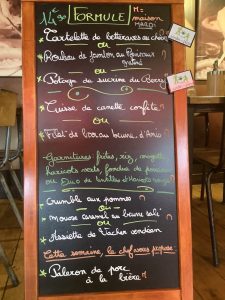 14€90 FORMULE M = maison
MARDI
Tartelette de betteraves au chèvre
ou
Rouleau de jambon au Poireaux
gratiné
ou
Potage de sucrine du Berry
Cuisse de canette confite
ou
Filet de lieu au beurre d'Anis
Garnitures: frites, riz,
haricots verts, fondue de poireaux
ou Duo de lentilles et haricots rouges
Crumble aux pommes
ou
Mousse caramel au beurre salé
ou
Assiette de Vacher vendéen
Cette semaine, le chef vous propose
Paleron de porc
à la bière